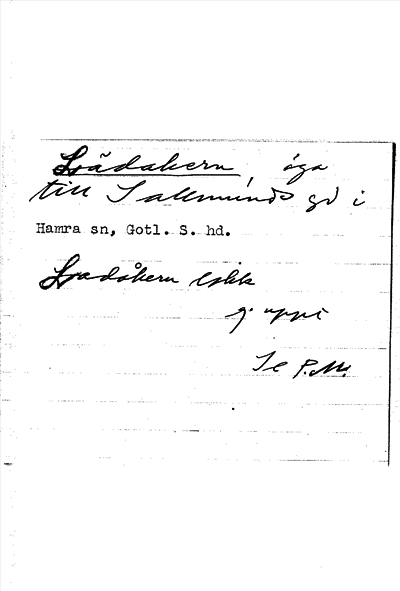 Lädakern, äga
till Sallmunds gd i
Hamra sn, Gotl. S. hd.
Ladåkern
g. uppt
Se P.M.